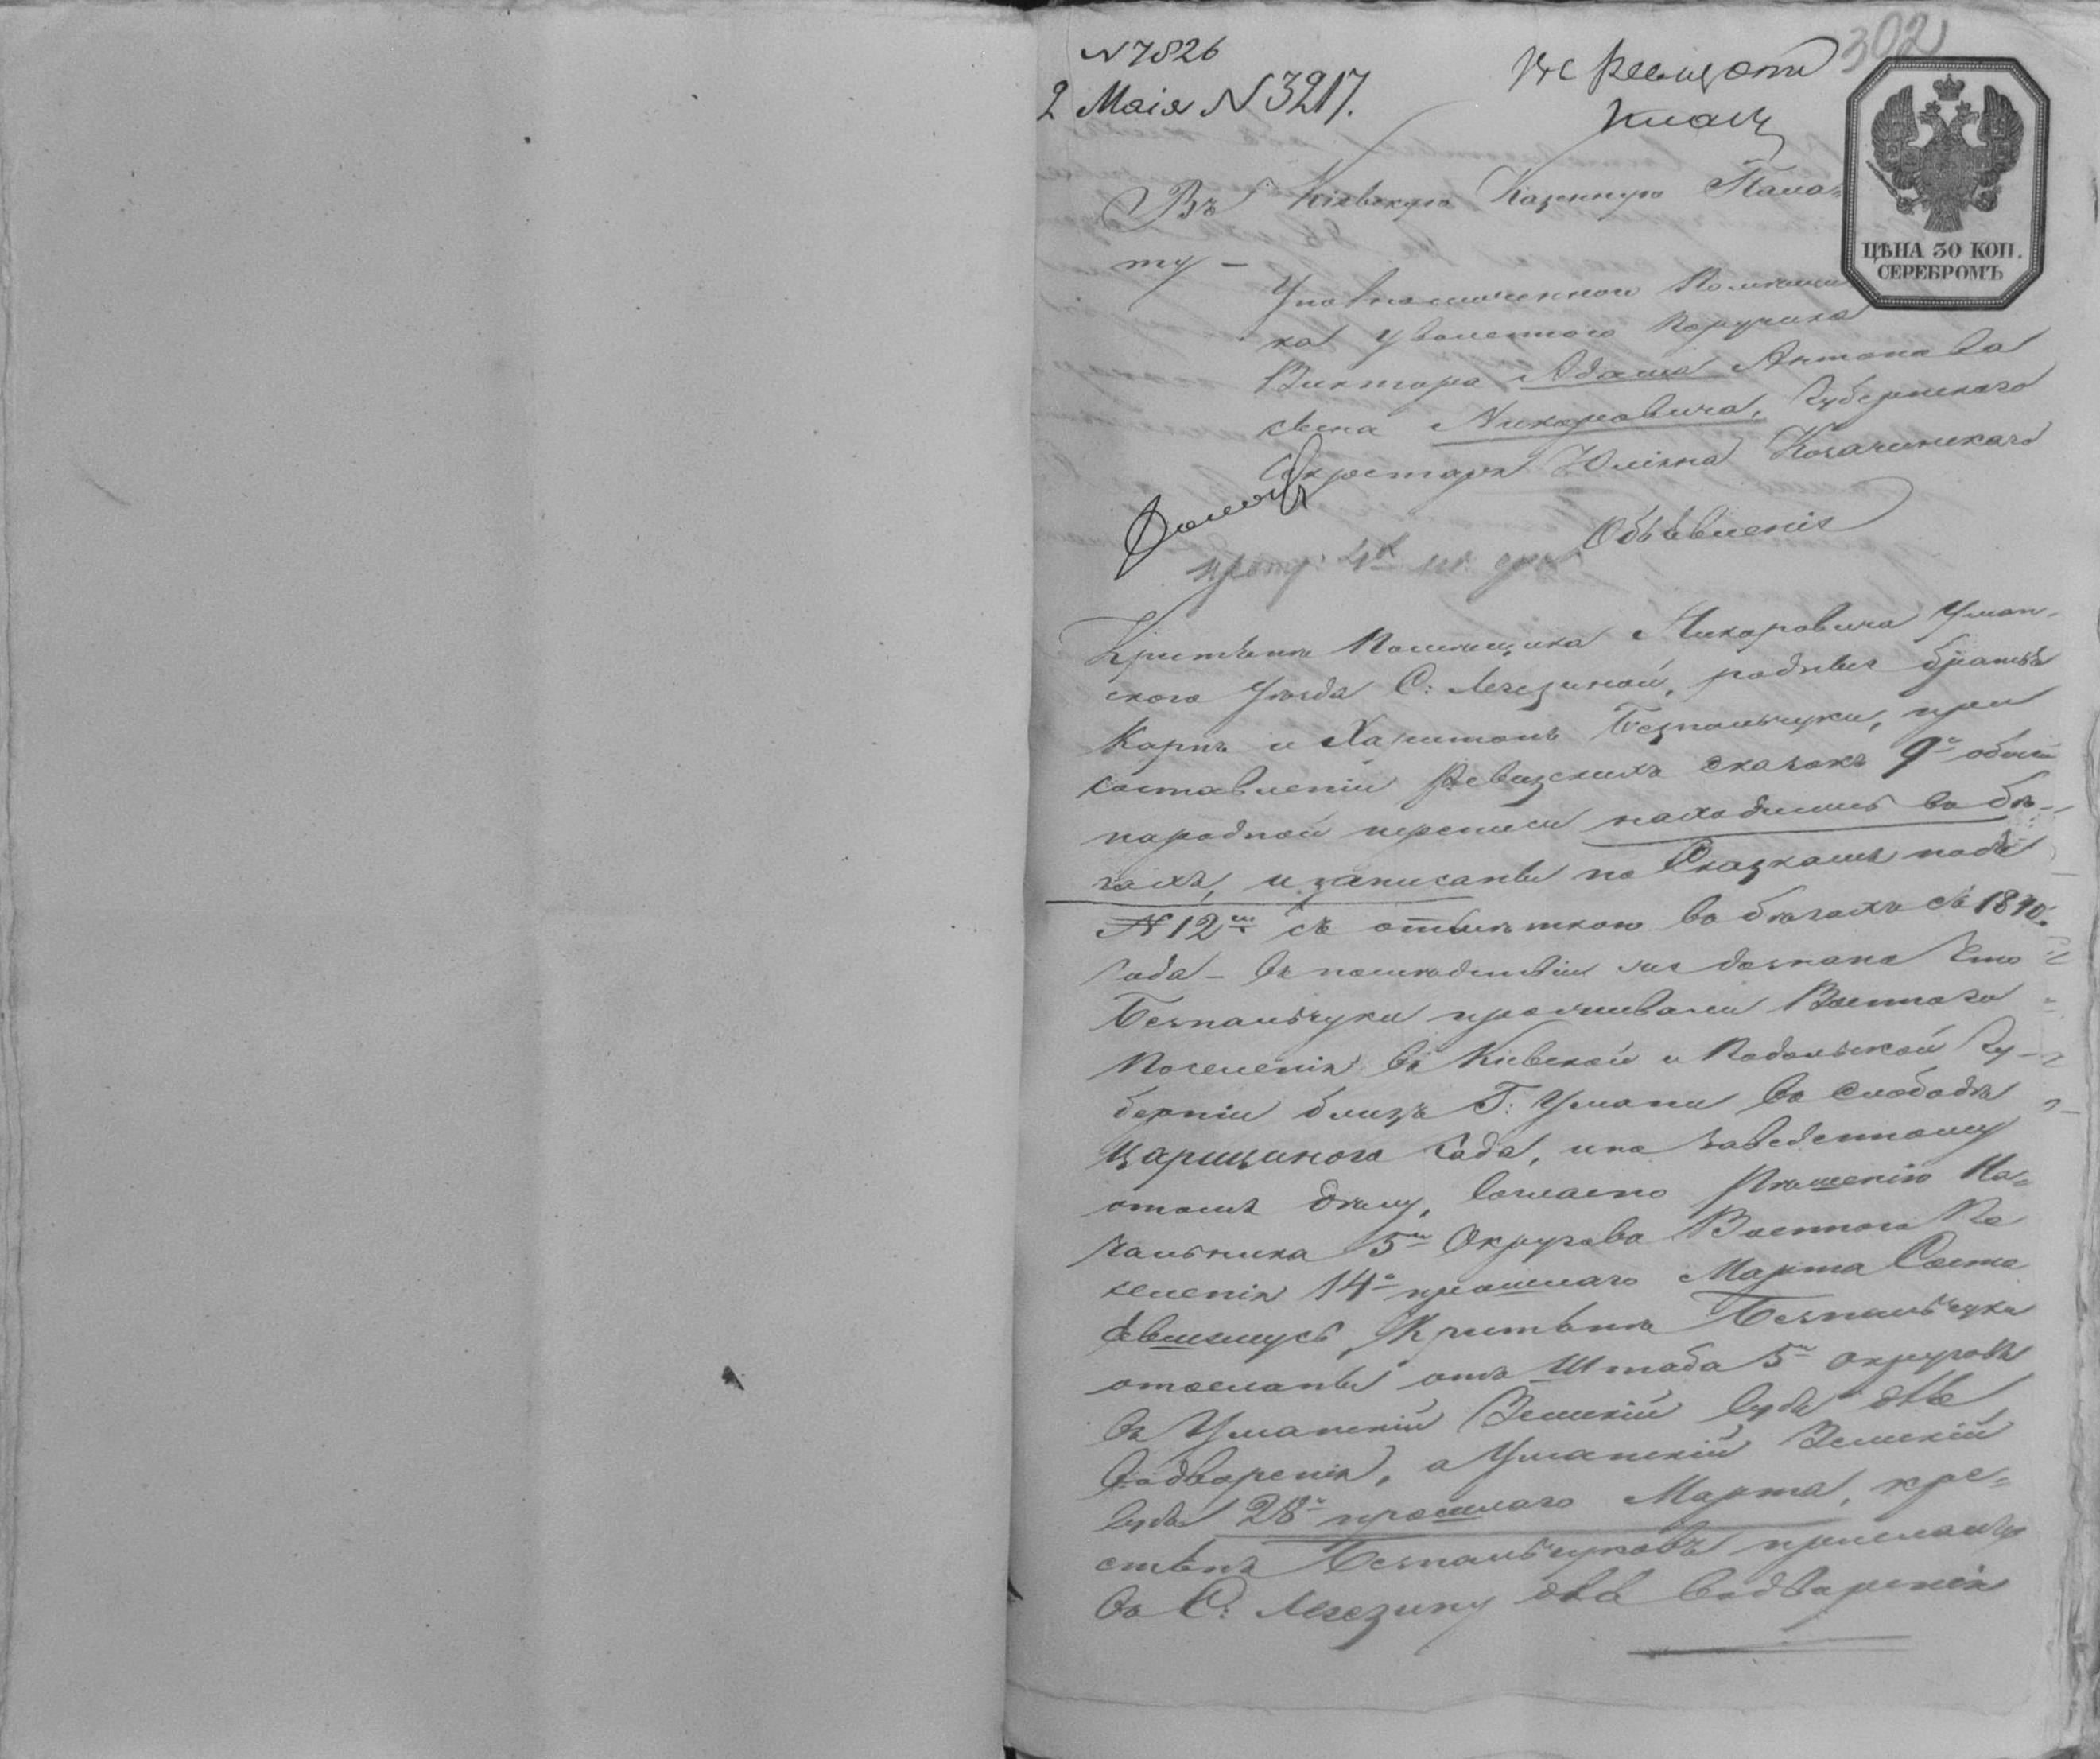 302
N 7826
2 Маія N 3217.
ЦѢНА 30 КОП.
СЕРЕБРОМЪ
Въ Кіевскую Казенную Пала=
ту –
Уполномоченнаго Помѣщи
ка уволеннаго Поручика
Виктора Адама Антонова
сына Губернскаго
Секретаря Юліана
Объявленіе
Крестьяне Помѣщика Уман-
скаго Уѣзда С: Легезиной, родные братья
Карпъ и Харитонъ Безпальчуки, при
составленіи Ревизскихъ сказокъ 9й общей
народной переписи находились въ бѣ-
гахъ, и записаны по Сказкамъ подъ
N 12м съ отмѣткою въ бѣгахъ съ 1840.
Года – въ послѣдствіи же дознано что
Безпальчуки проживали Военнаго
Поселенія въ Кіевской и Подольской Гу-
берніи близъ Г: Умани въ слободѣ
Царицыного Сада, и по заведенному
о томъ дѣлу, согласно Рѣшенію На=
чальника 5го Округовъ Военнаго По
селенія 14го прошлаго Марта Состо
явшемуся, Крестьяне Безпальчуки
отосланы отъ Штаба 5 округовъ
въ Уманскій Земскій Судъ для
водворенія, а Уманскій Земскій
Судъ 28го прошлаго Марта, кре=
стьянъ Безпальчуковъ
въ С: Легезину для водворенія